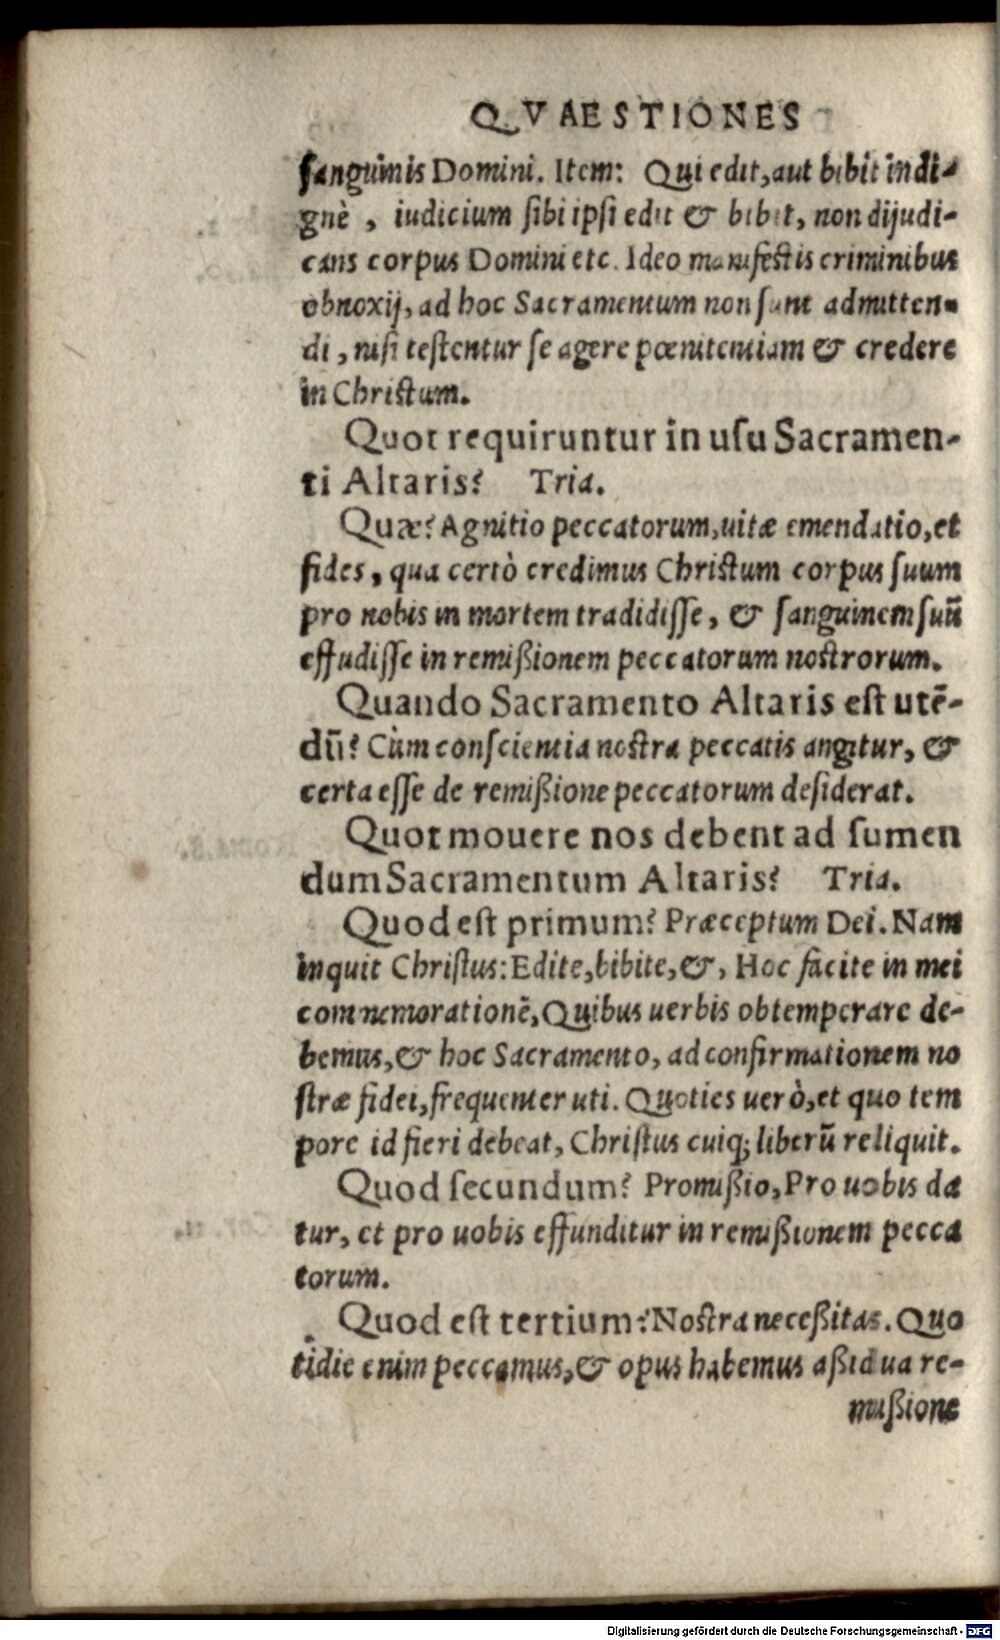 QVAESTIONES
sanguinis Domini. Item: Qui edit, aut bibit indi-
gnè, iudicium sibi ipsi edit & bibit, non dijudi-
cans corpus Domini etc. Ideo manifestis criminibus
obnoxij, ad hoc Sacramentum non sunt admitten-
di, nisi testentur se agere pœnitentiam & credere
in Christum.
Quot requiruntur in usu Sacramen-
ti Altaris? Tria.
Quæ? Agnitio peccatorum, uitæ emendatio, et
fides, qua certò credimus Christum corpus suum
pro nobis in mortem tradidisse, & sanguinem suū
effudisse in remißionem peccatorum nostrorum.
Quando Sacramento Altaris est utē-
dū? Cùm conscientia nostra peccatis angitur, &
certa esse de remißione peccatorum desiderat.
Quot mouere nos debent ad sumen
dum Sacramentum Altaris? Tria.
Quod est primum? Præceptum Dei. Nam
inquit Christus: Edite, bibite, &, Hoc facite in mei
commemorationē, Quibus uerbis obtemperare de-
bemus, & hoc Sacramento, ad confirmationem no
stræ fidei, frequenter uti. Quoties uerò, et quo tem
pore id fieri debeat, Christus cuiq; liberū reliquit.
Quod secundum? Promißio, Pro uobis da
tur, et pro uobis effunditur in remißionem pecca
torum.
Quod est tertium? Nostra neceßitas. Quo
tidie enim peccamus, & opus habemus aßidua re-
mißione
Digitalisierung gefördert durch die Deutsche Forschungsgemeinschaft - DFG